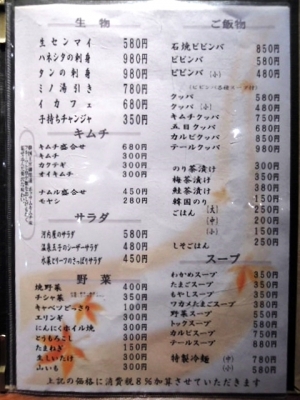 生物
生センマイ 580円
ハネシタの刺身 980円
タンの刺身 980円
ミノ湯引き 780円
イカフェ 680円
子持ちチャンジャ 350円
キムチ
キムチ盛合せ 680円
キムチ 300円
カクテギ 300円
オイキムチ 300円
ナムル盛合せ 450円
モヤシ 280円
サラダ
河内屋のサラダ 580円
温泉玉子のシーザーサラダ 480円
水菜とリーフのさっぱりサラダ 450円
野菜
焼野菜 400円
チシャ菜 350円
キャベツどっさり 100円
エリンギ 300円
にんにくホイル焼 300円
とうもろこし 300円
たまねぎ 150円
生しいたけ 300円
山いも 300円
ご飯物
石焼ビビンバ 850円
ビビンバ 580円
ビビンバ (小) 480円
クッパ 580円
クッパ (小) 480円
キムチクッパ 700円
五目クッパ 680円
カルビクッパ 780円
テールクッパ 980円
のり茶漬け 350円
梅茶漬け 350円
鮭茶漬け 350円
韓国のり 150円
ごはん (大) 250円
(中) 200円
(小) 150円
しそごはん 250円
スープ
わかめスープ 350円
たまごスープ 350円
もやしスープ 350円
ワカメたまごスープ 380円
野菜スープ 550円
トックスープ 580円
カルビスープ 750円
テールスープ 880円
特製冷麺 (中) 780円
(小) 580円
上記の価格に消費税8%加算させていただきます